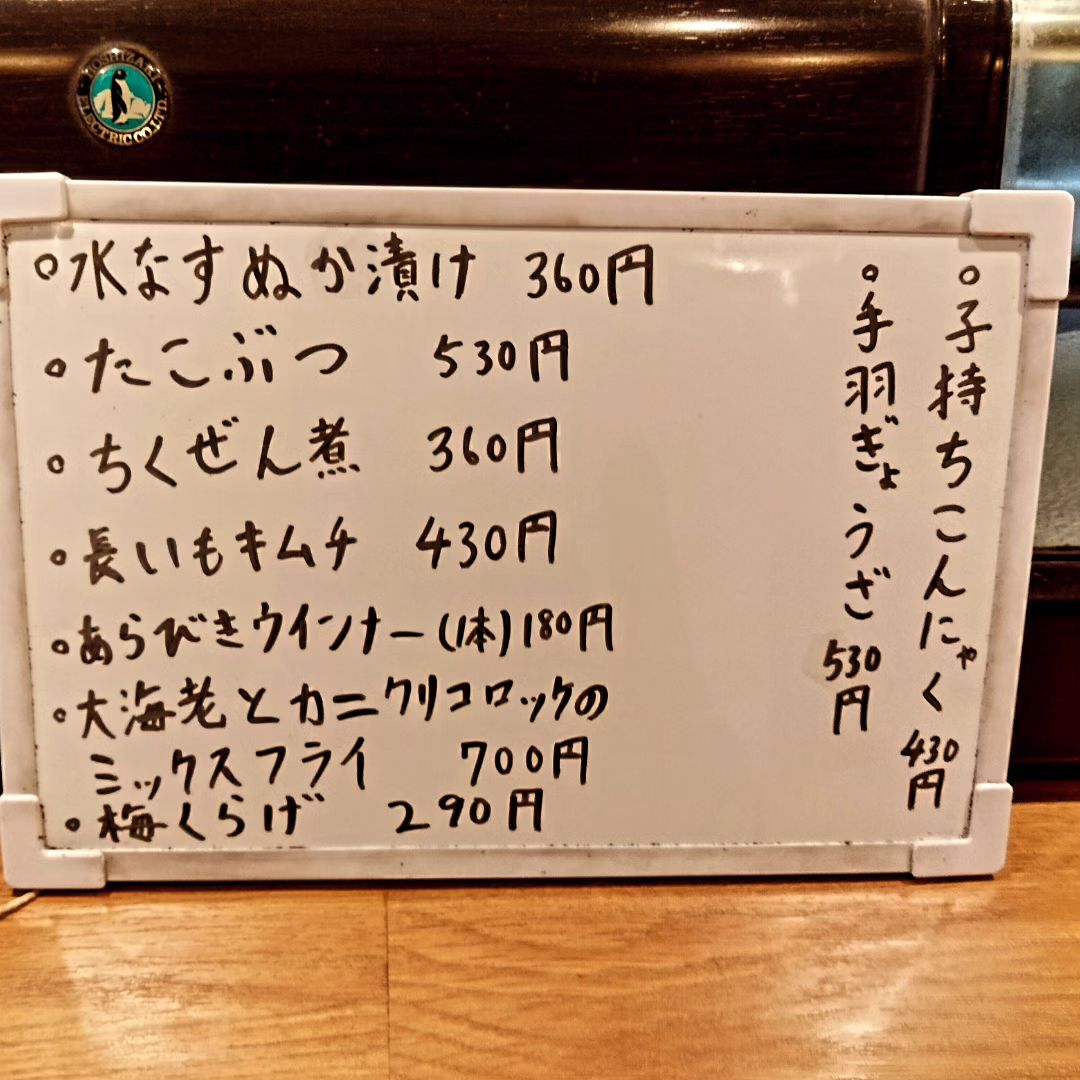 HOSHIZAKI ELECTRIC CO.,LTD.
○水なすぬか漬け 360円
○たこぶつ 530円
○ちくぜん煮 360円
○長いもキムチ 430円
○あらびきウインナー(1本)180円
○大海老とカニクリコロッケの
ミックスフライ 700円
○梅くらげ 290円
○子持ちこんにゃく 430円
○手羽ぎょうざ 530円